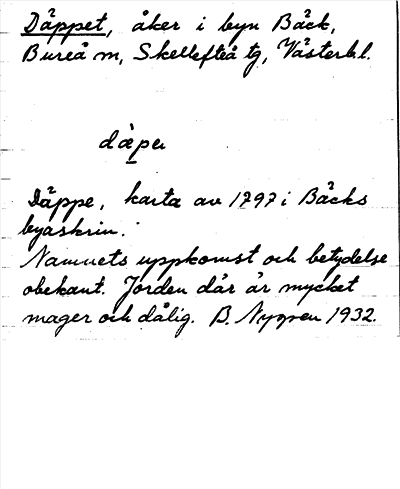 Däppet, åker i byn Bäck,
Bureå m, Skellefteå tg, Västerbl.
Däppe, karta av 1797 i Bäcks
byaskrin.
Namnets uppkomst och betydelse
obekant. Jorden där är mycket
mager och dålig. B. Nygren 1932.